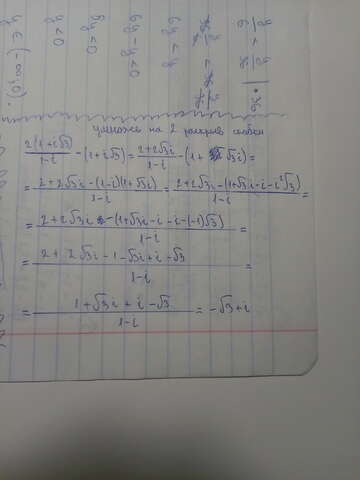 6y < y
6y - y < 0
y < 0
y ∈ (-∞, 0).
на 2 раскрыв скобки
2(1+i√3)/(1-i) - (1+i√3) = (2+2√3)/(1-i) - (1+√3i) =
= (2+2√3i-(1-i)(1+√3i))/(1-i) = (2+2√3i-(1+√3i-i-i²√3))/(1-i) =
= (2+2√3i-(1+√3i-i-(-1)√3))/(1-i) =
= (2+2√3i-1-√3i+i-√3)/(1-i) =
= (1+√3i+i-√3)/(1-i) = -√3+i